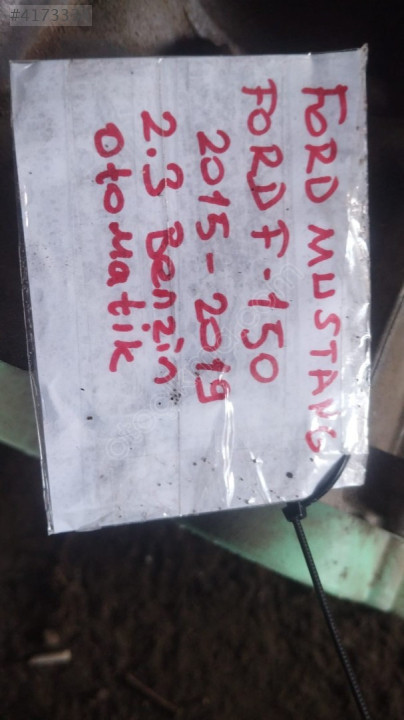 #41733
FORD MUSTANG
FORD F-150
2015-2019
2.3 Benzin
otomatik